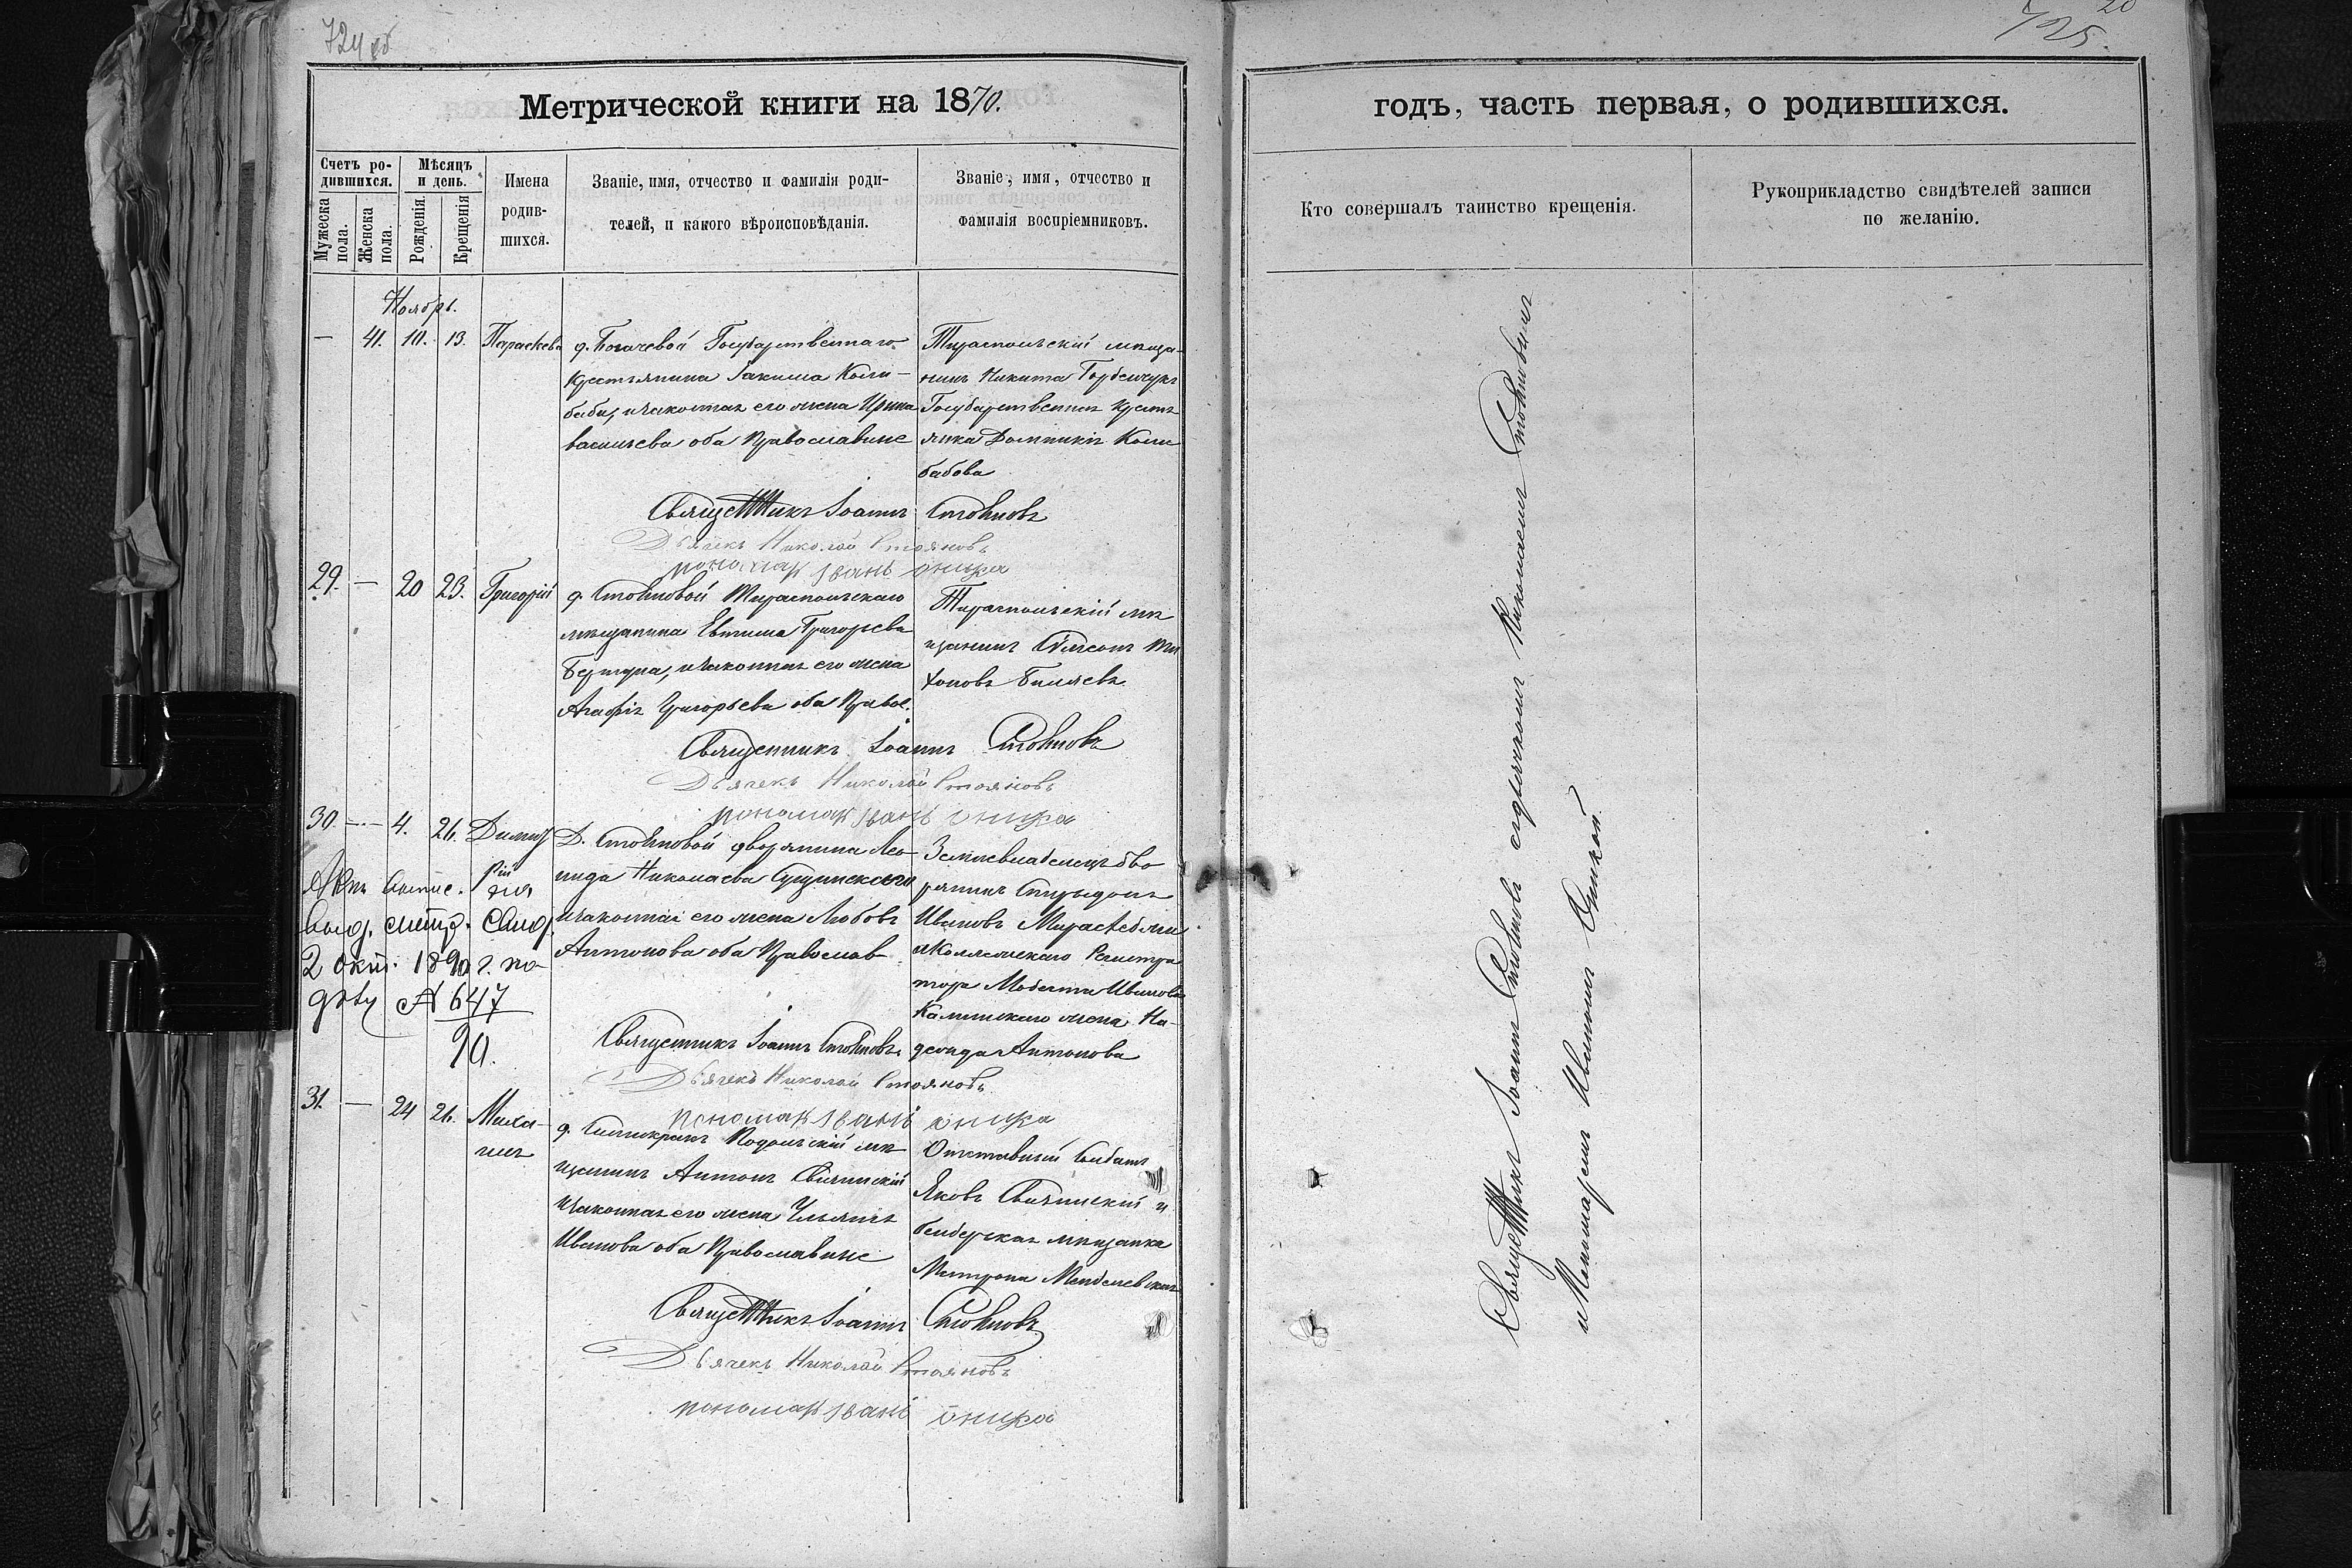 724 об
Метрической книги на 1870.
Счетъ ро-
дившихся.
Мужеска пола.
Женска пола.
Мѣсяцъ
и день.
Рожденія.
Крещенія
Имена
родив-
шихся.
Званіе, имя, отчество и фамилія роди-
телей, и какого вѣроисповѣданія.
Званіе, имя, отчество и
фамилія воспріемниковъ.
Ноябрь.
— 41. 10. 13. Параскева
д. Богачевой Государственнаго
крестьянина Іакима Коли-
бабы, изаконная его жена Ирина
васильева оба Православные
Тираспольскій мѣща-
нинъ Никита Горбенчукъ
Государственная крестъ
янка Домникія Коли
бабова
Священникъ Іоаннъ Стояновъ
Дьячекъ Николай Стояновъ
пономарь Іванъ Оницка
29. — 20 23. Григорій
д. Стояновой Тираспольскаго
мѣщанина Евтима Григорьева
изаконная его жена
Агафія Григорьева оба Правос.
Тираспольскій мѣ
щанинъ Симеонъ Ти
хоновъ Биляевъ
Священникъ Іоаннъ Стояновъ
Дьячекъ Николай Стояновъ
пономарь Іванъ Оницка
30. — 4. 26. Димит
рій
Д. Стояновой дворянина Лео-
нида Николаева Сущинскаго
изаконная его жена Любовь
Антонова оба Православ
Землевладелецъ дво
рянинъ Спиридонъ
Ивановъ
иКоллежскаго Регистра
тора Модеста Иванова
жена На-
дежда Антонова
выд. метр. свид.
2 окт. 1890 г. по
дѣлу № 647
90.
Священникъ Іоаннъ Стояновъ
Дьячекъ Николай Стояновъ
пономарь Іванъ Оницка
31. — 24 26. Миха-
илъ
д. Подольскій мѣ
щанинъ Антонъ Свячинскій
изаконная его жена Ульяна
Иванова оба Православные
Отставный Солдатъ
Яковъ Свячинскій и
бендерская мѣщанка
Матрона Менделевская
Священникъ Іоаннъ Стояновъ
Дьячекъ Николай Стояновъ
пономарь Іванъ Оницка
20
725.
годъ, часть первая, о родившихся.
Кто совершалъ таинство крещенія.
Рукоприкладство свидѣтелей записи
по желанію.
Священникъ Іоаннъ Стояновъ сдьячкомъ Николаемъ Стояновымъ
иПономаремъ Иваномъ Оницкой.